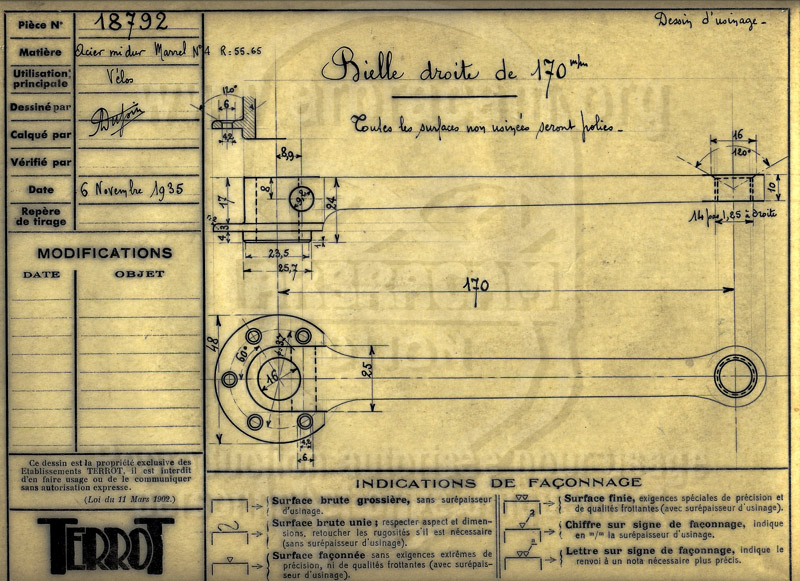 Pièce N° 18792
Matière Acier mi dur Marrel N° 4 R = 55.65
Utilisation principale Vélos
Dessiné par Dupin
Calqué par
Vérifié par
Date 6 Novembre 1935
Repère de tirage
MODIFICATIONS
DATE OBJET
Ce dessin est la propriété exclusive des
Etablissements TERROT, il est interdit
d'en faire usage ou de le communiquer
sans autorisation expresse.
(Loi du 11 Mars 1902.)
TERROT
Dessin d'usinage -
Bielle droite de 170 m/m
Toutes les surfaces non usinées seront polies -
120°
6
4,2
8,9
17
8
9,2
24
4,3
1
23,5
25,7
16
120°
10
14 pas 1,25 à droite
170
48
60°
16
25
4,2
6
INDICATIONS DE FAÇONNAGE
Surface brute grossière, sans surépaisseur
d'usinage.
Surface brute unie ; respecter aspect et dimen-
sions, retoucher les rugosités s'il est nécessaire
(sans surépaisseur d'usinage).
Surface façonnée sans exigences extrêmes de
précision, ni de qualités frottantes (avec surépais-
seur d'usinage).
Surface finie, exigences spéciales de précision et
de qualités frottantes (avec surépaisseur d'usinage).
3
Chiffre sur signe de façonnage, indique
en m/m la surépaisseur d'usinage.
a
Lettre sur signe de façonnage, indique le
renvoi à un nota nécessaire plus précis.